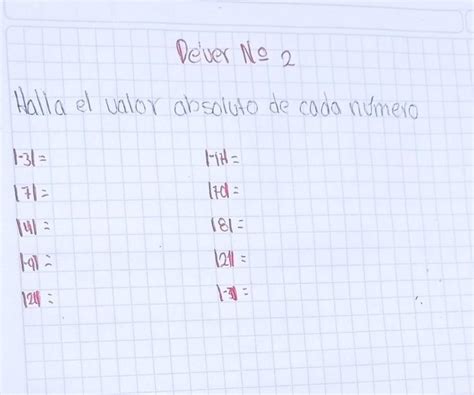 Dever Nº 2
Halla el valor absoluto de cada número
|-3| =
|7| =
|4| =
|-9| =
|-1| =
|8| =
|2| =
|-3| =